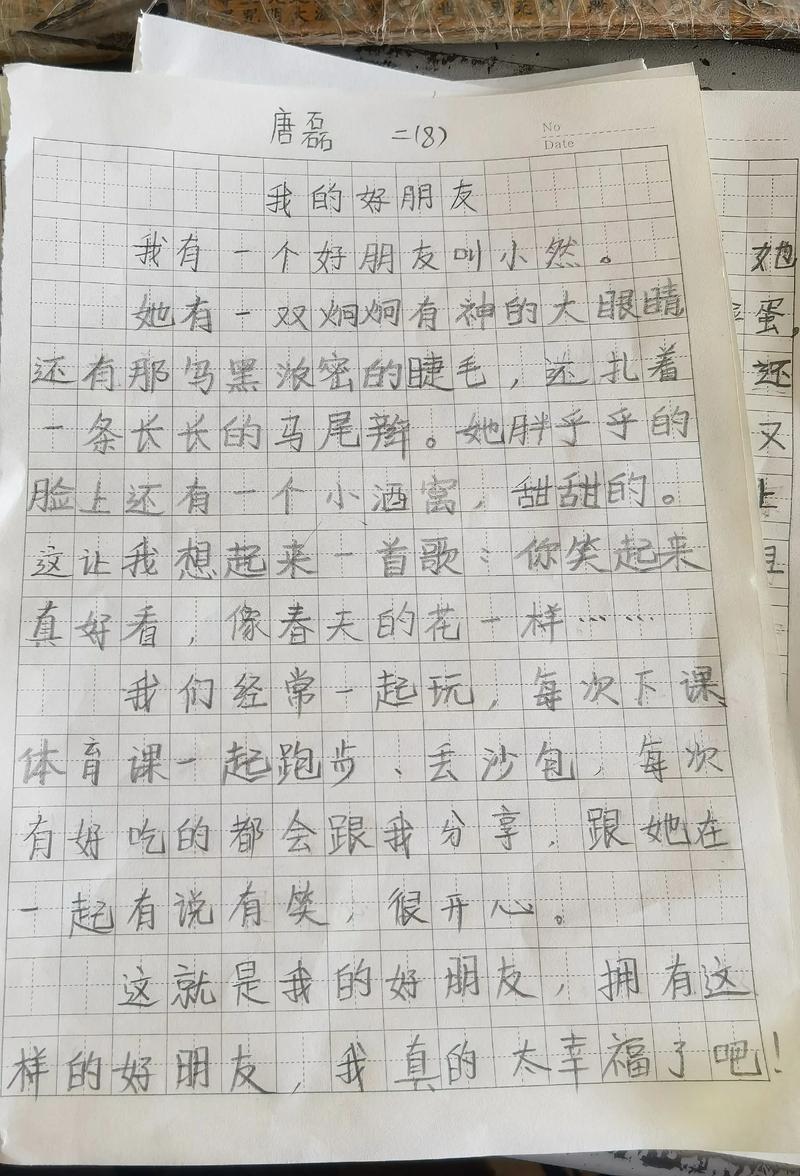 唐磊 二(8)
No
Date
我的好朋友
我有一个好朋友叫小然。
她有一双炯炯有神的大眼睛
还有那乌黑浓密的睫毛，还扎着
一条长长的马尾辫。她胖乎乎的
脸上还有一个小酒窝，甜甜的。
这让我想起来一首歌：你笑起来
真好看，像春天的花一样……
我们经常一起玩，每次下课、
体育课一起跑步、丢沙包，每次
有好吃的都会跟我分享，跟她在
一起有说有笑，很开心。
这就是我的好朋友，拥有这
样的好朋友，我真的太幸福了吧！
她
蛋，
还
又
上